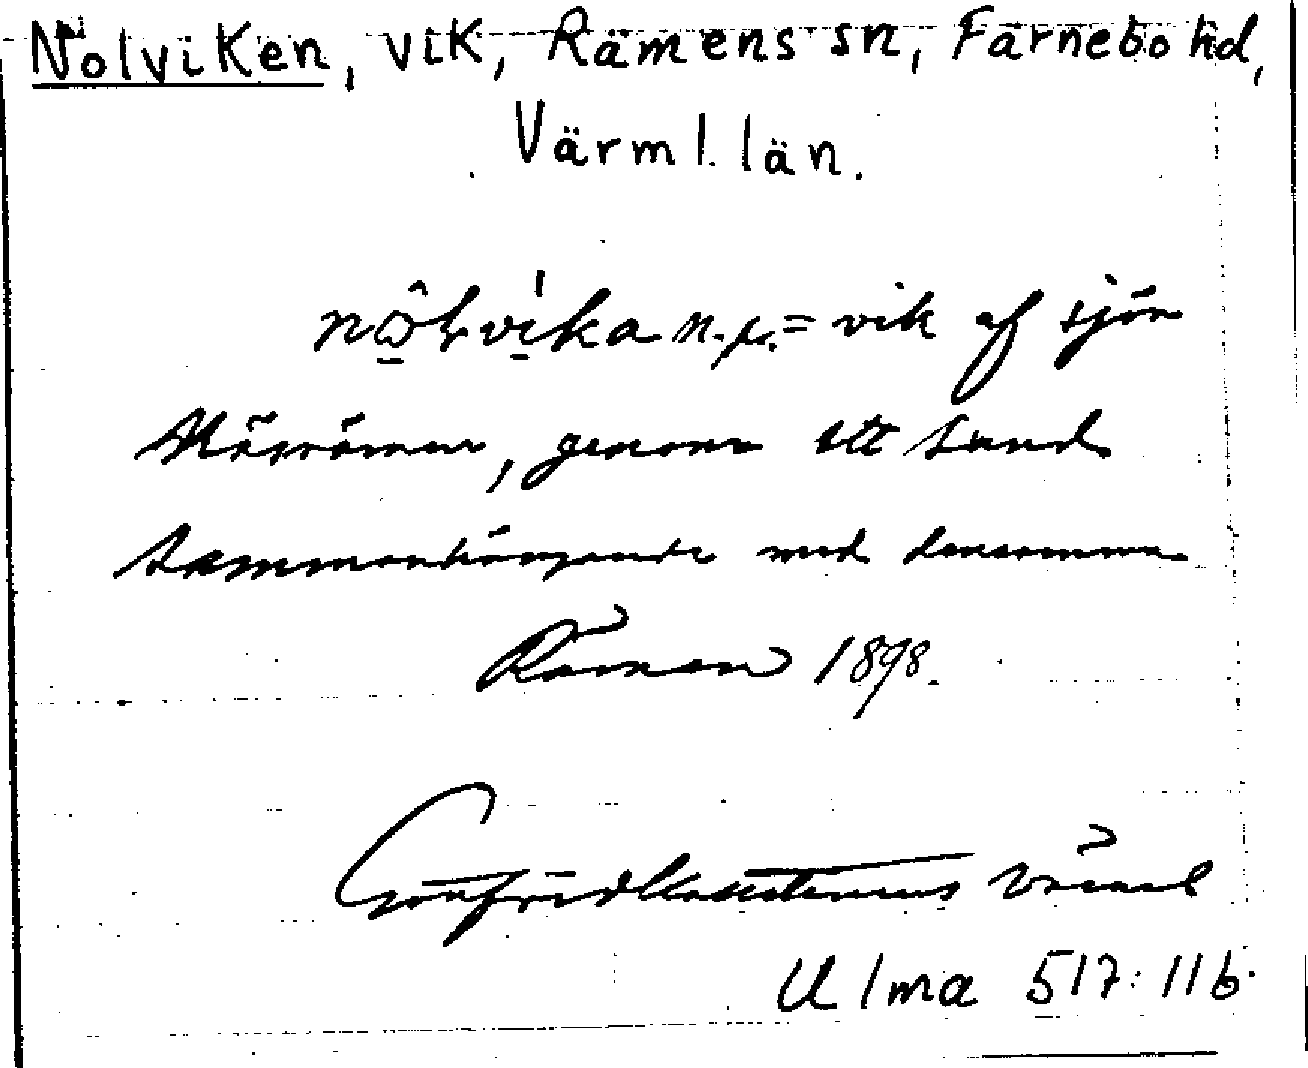 Nolviken, vik, Rämens sn, Färnebo hd,
Värml. län.
vika n. pr. = vik af sjön
genom ett sund
sammanhängande med densamma
Rämen 1898.
Gottfrid Kallstenius
Ulma 517:11b.